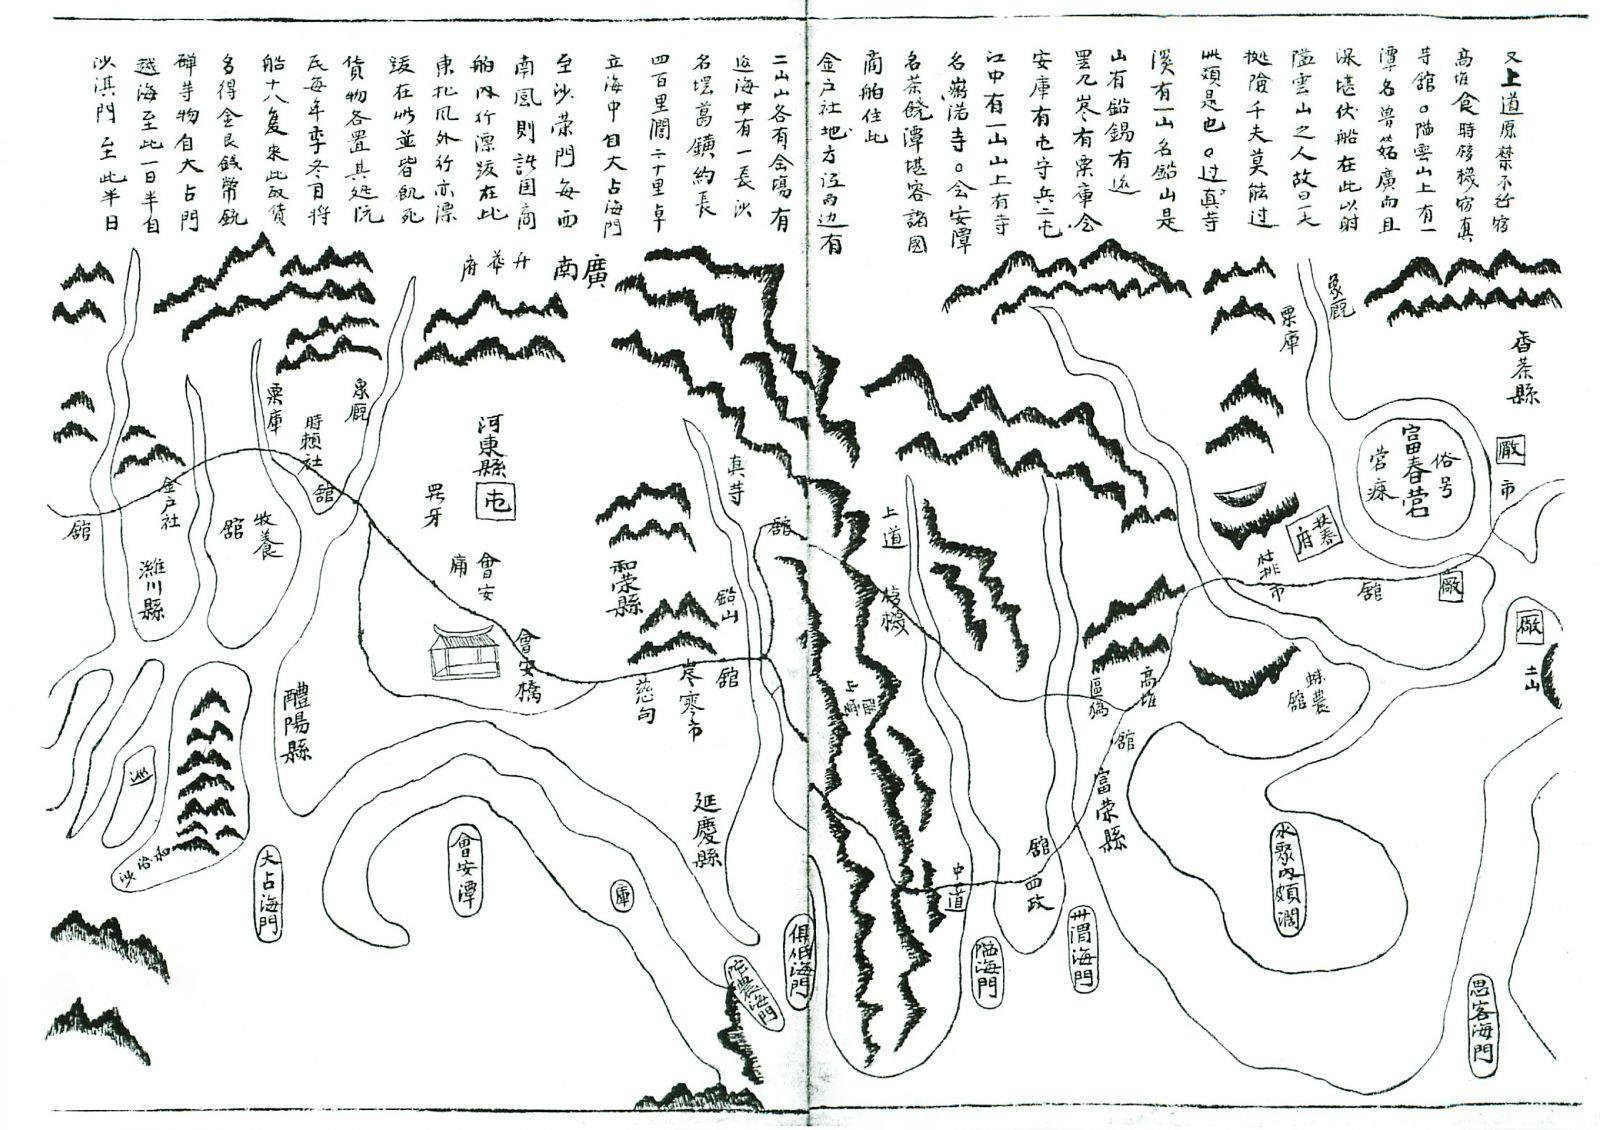 又上道原禁不行宿
高堆食時稜機宿真
寺館。隘雲山上有一
潭名兽廣而且
深堪伏船在此以射
隘雲山之人故曰一夫
挺險千夫莫能过
此類是也。过真寺
溪有一山名鉛山是
山有鉛錫有
有粟庫会
安庫有屯守兵二屯
江中有一山山上有寺
名渃寺。会安潭
名茶饒潭堪容諸國
商舶住此
金户社地方江两边有
二山山各有金塲有
海中有一長沙
名壜葛鐄約長
四百里闊二十里卓
立海中自大占海門
至沙荣門每西
南風則諸国商
舶内行漂跋在此
東北風外行亦漂
跋在此並皆飢死
貨物各置其処阮
氏每年季冬月将
船十八隻来此取貨
多得金艮錢幣銃
碑等物自大占門
越海至此一日半自
沙淇門至此半日
香茶縣
象厩
粟庫
廠
市
俗号
富春营
营
扶春府
市
館
廠
廠
土山
館
高堆
橋
館
富荣縣
水聚内頗濶
思客海門
渭海門
隘海門
館
四政
中道
上道
稜機
館
真寺
鉛山
館
岑寒市
慈句
和荣縣
延慶縣
俱低海門
陀農海門
廣南
升華府
河東縣
屯
會安
庸
會安橋
會安潭
庫
象厩
時賴社
館
粟庫
牧養
館
金户社
濰川縣
館
醴陽縣
大占海門